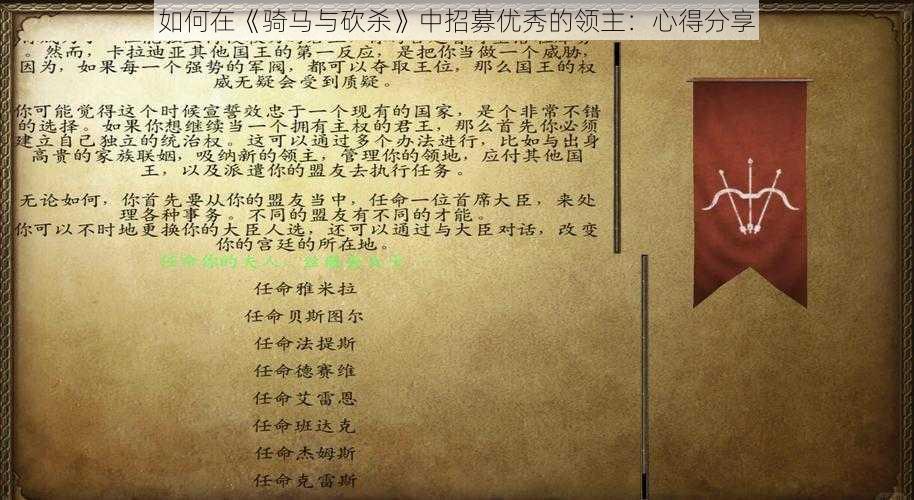 如何在《骑马与砍杀》中招募优秀的领主：心得分享
。然而，卡拉迪亚其他国王的第一反应，是把你当做一个威胁，
因为，如果每一个强势的军阀，都可以夺取王位，那么国王的权
威无疑会受到质疑。
你可能觉得这个时候宣誓效忠于一个现有的国家，是个非常不错
的选择。如果你想继续当一个拥有主权的君王，那么首先你必须
建立自己独立的统治权。这可以通过多个办法进行，比如与出身
高贵的家族联姻，吸纳新的领主，管理你的领地，应付其他国
王，以及派遣你的盟友去执行任务。
无论如何，你首先要从你的盟友当中，任命一位首席大臣，来处
理各种事务。不同的盟友有不同的才能。
你可以不时地更换你的大臣人选，还可以通过与大臣对话，改变
你的宫廷的所在地。
任命你的夫人，
任命雅米拉
任命贝斯图尔
任命法提斯
任命德赛维
任命艾雷恩
任命班达克
任命杰姆斯
任命克雷斯